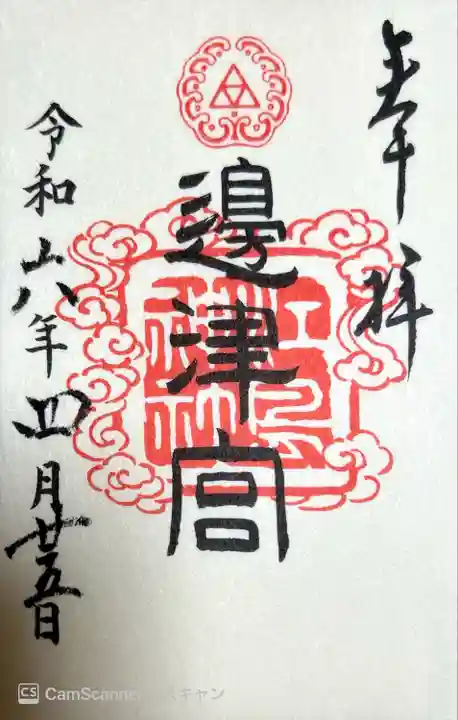 奉拝
邊津宮
江島神社
令和六年四月廿五日
CS CamScanner スキャン